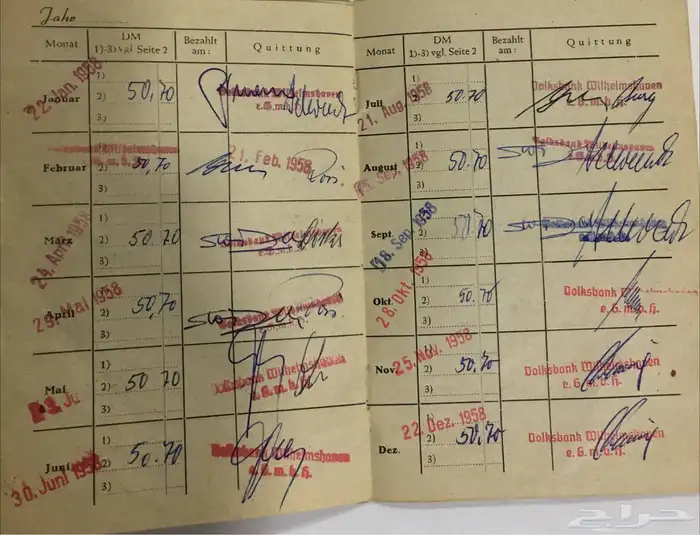 Jahr
Monat
DM
1)-3) vgl. Seite 2
Bezahlt
am:
Quittung
22. Jan. 1958
Januar
1)
2) 50,70
3)
Volksbank Wilhelmshaven
e.G.m.b.H.
Februar
1)
2) 50,70
3)
21. Feb. 1958
März
1)
2) 50 70
3)
Volksbank
24. Apr. 1958
April
1)
2) 50,70
3)
29. Mai 1958
Mai
1)
2) 50 70
3)
Volksbank Wilhelmshaven
e.G.m.b.H.
Juni
1)
2) 50.70
3)
30. Juni 1958
Volksbank Wilhelmshaven
e.G.m.b.H.
Monat
DM
1)-3) vgl. Seite 2
Bezahlt
am:
Quittung
Juli
1)
2) 50.70
3)
21. Aug. 1958
Volksbank Wilhelmshaven
e.G.m.b.H.
August
1)
2) 50,70
3)
Sep. 1958
Volksbank Wilhelmshaven
Sept
1)
2) 50 70
3)
18. Sep. 1958
Okt.
1)
2) 50.70
3)
28. Okt. 1958
Volksbank Wilhelmshaven
e.G.m.b.H.
Nov.
1)
2) 50.70
3)
25. Nov. 1958
Volksbank Wilhelmshaven
e.G.m.b.H.
Dez.
1)
2) 50,70
3)
22. Dez. 1958
Volksbank Wilhelmshaven
e.G.m.b.H.
حراج